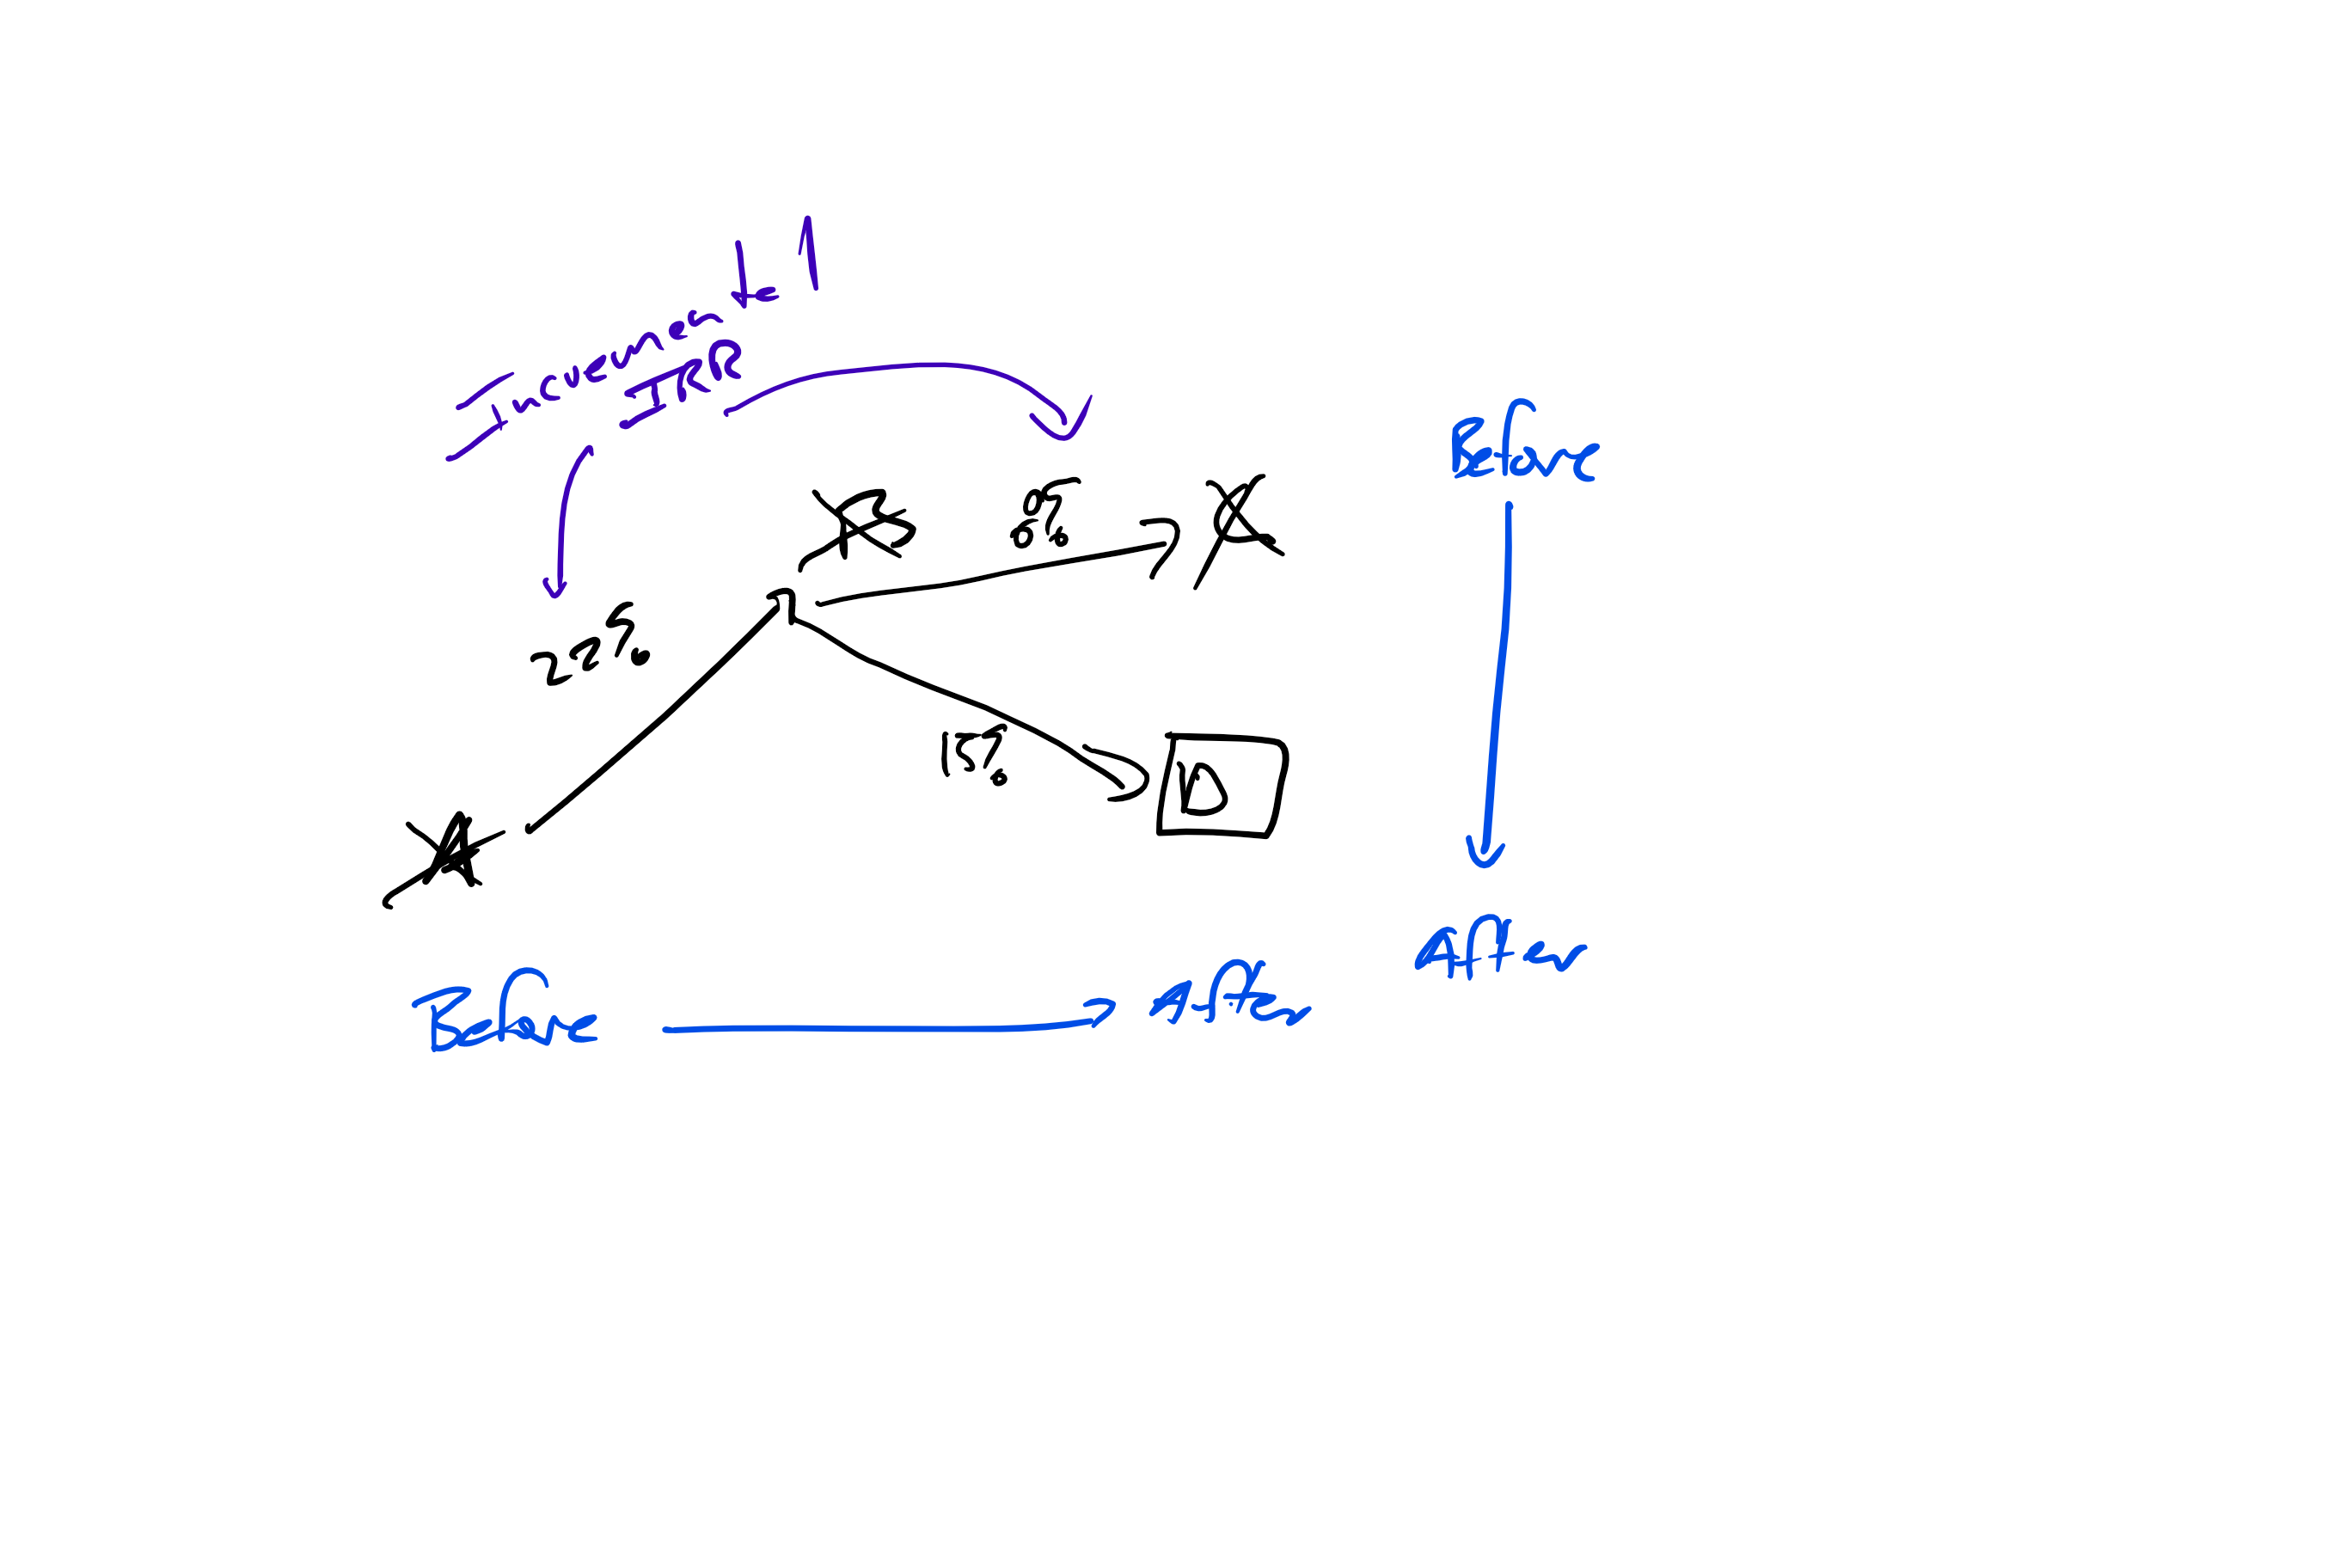 Incremental
IRR
B
8%
C
22%
15%
D
A
Before
After
Before
After